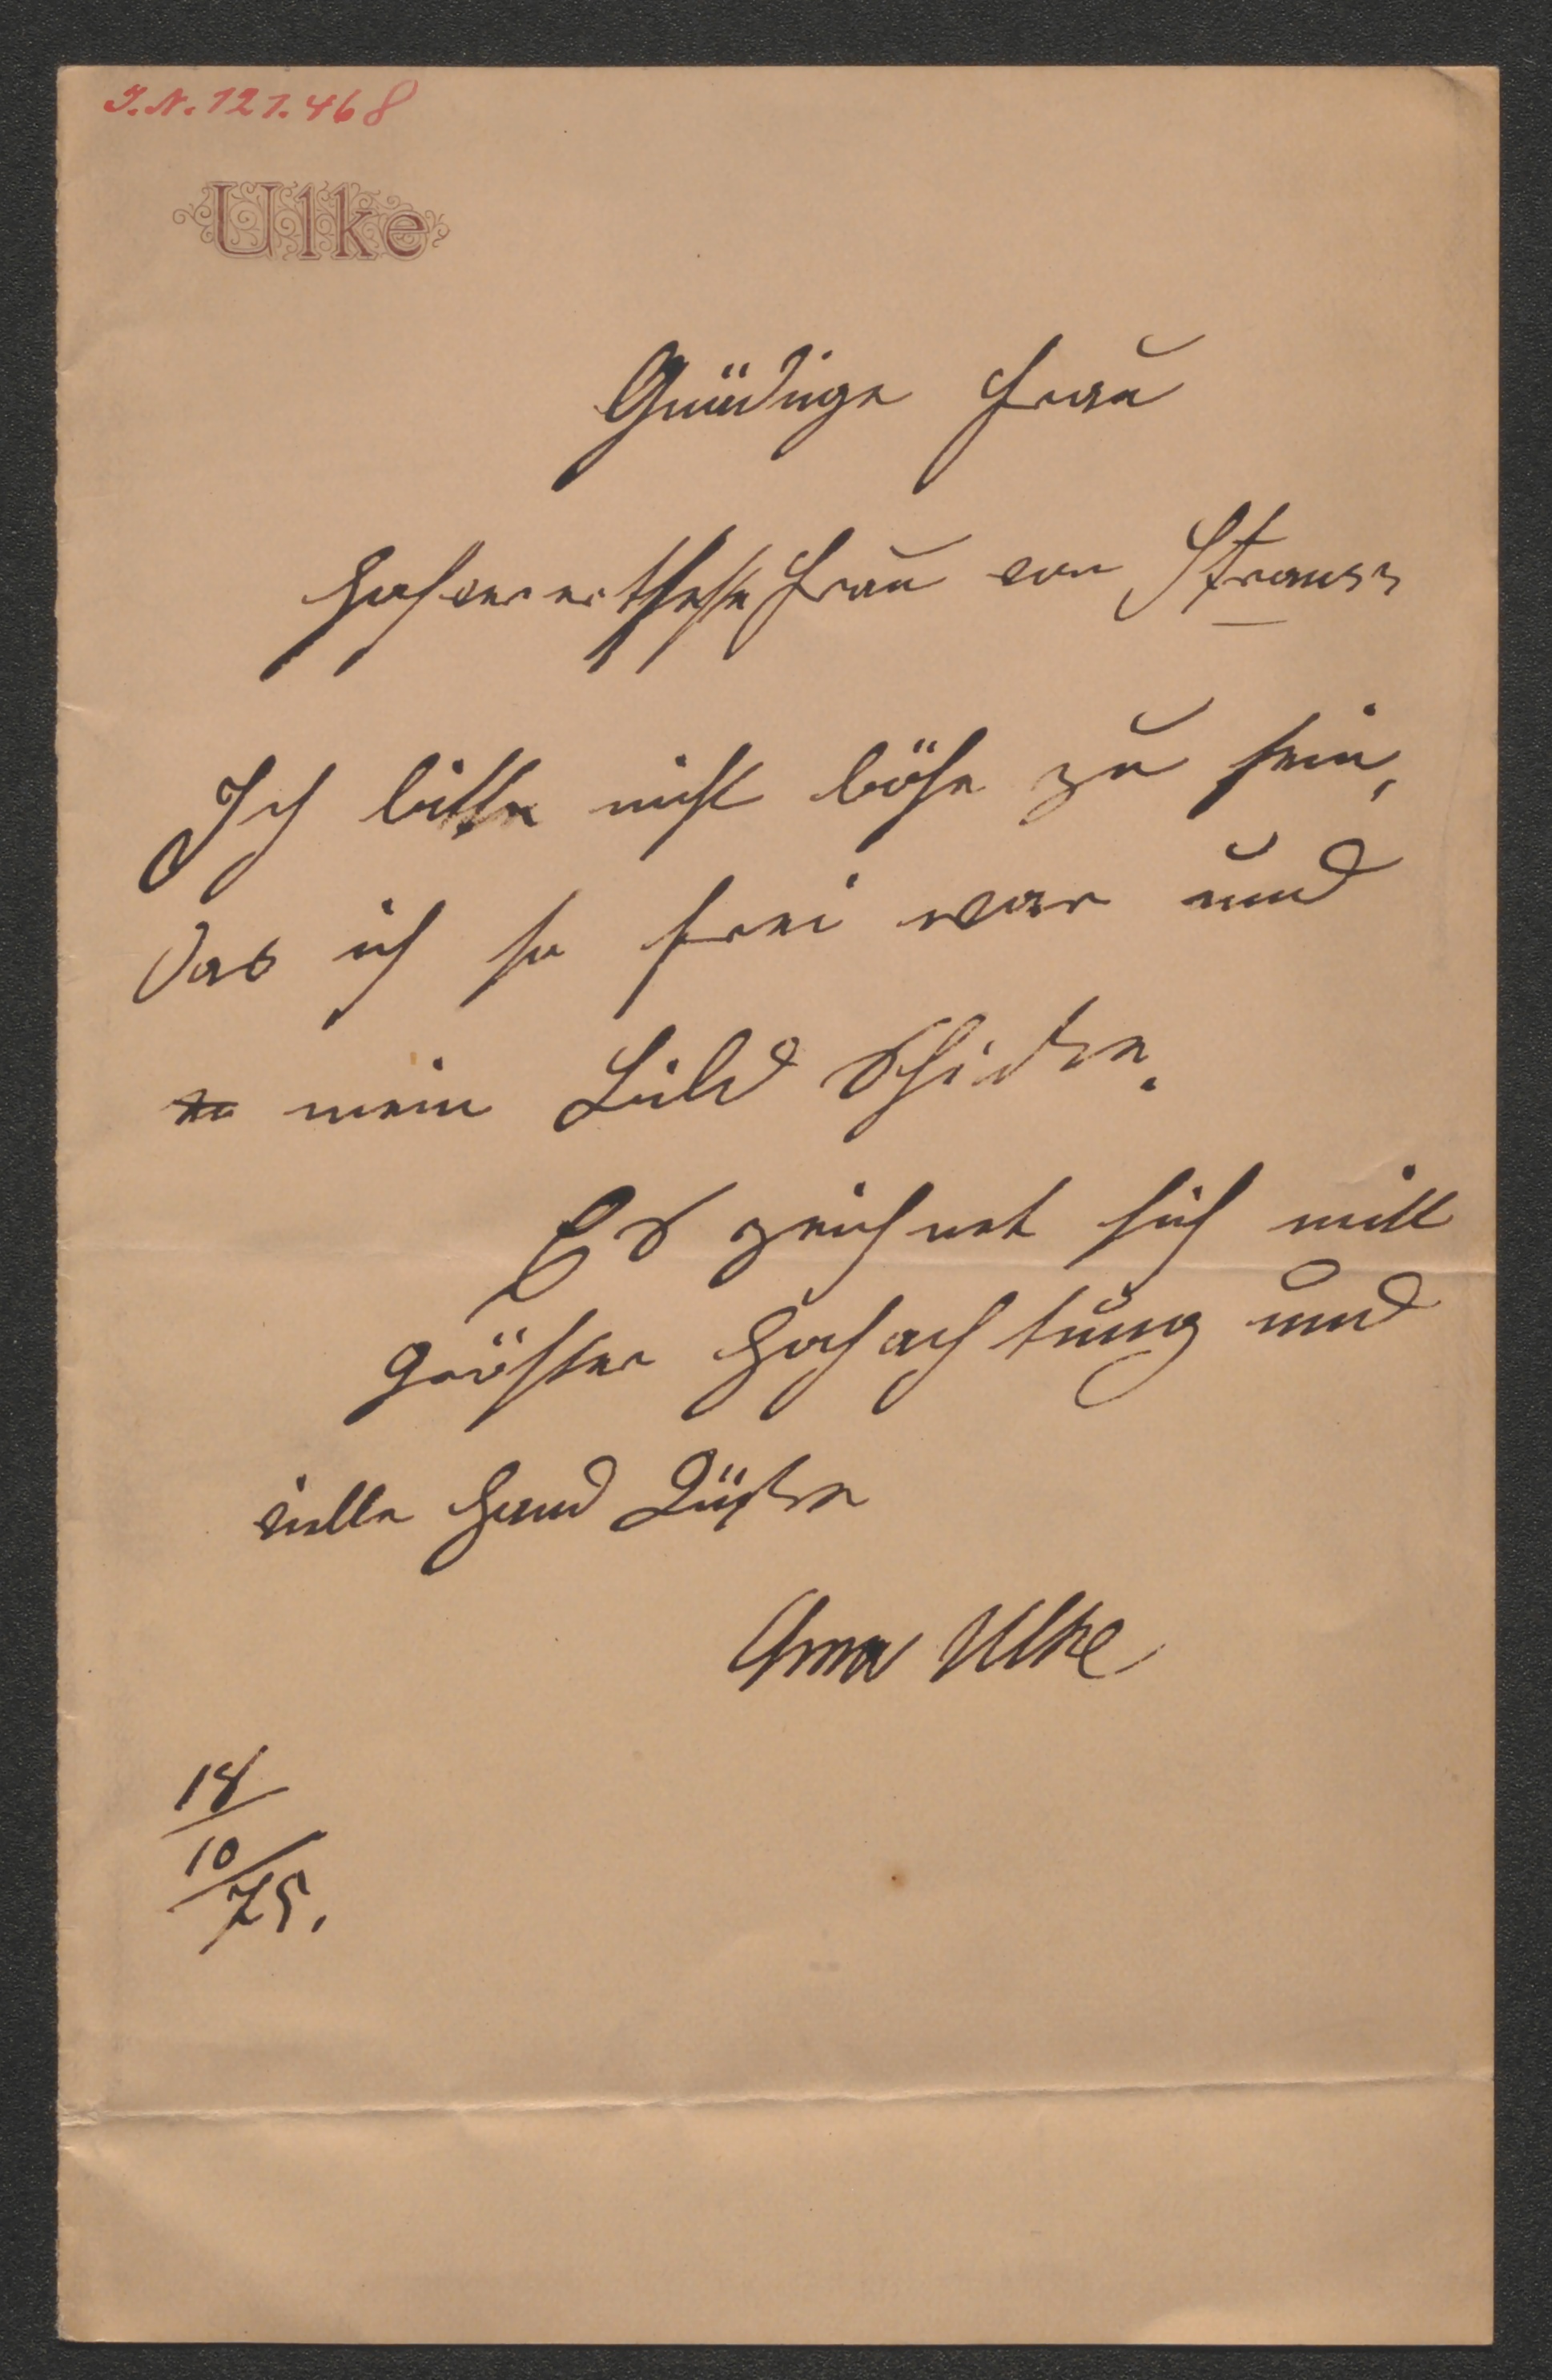 I.N. 121.468
Ulke
Gnädige Frau
Hochverertheste Frau von Strauss
Ich bitte nicht böse zu sein,
das ich so frei war und
mein Bild schicke.
Es zeichnet sich mitt
größter Hochachtung und
vielle Hand Küsse
Anna Ulke
18/
10/
75.